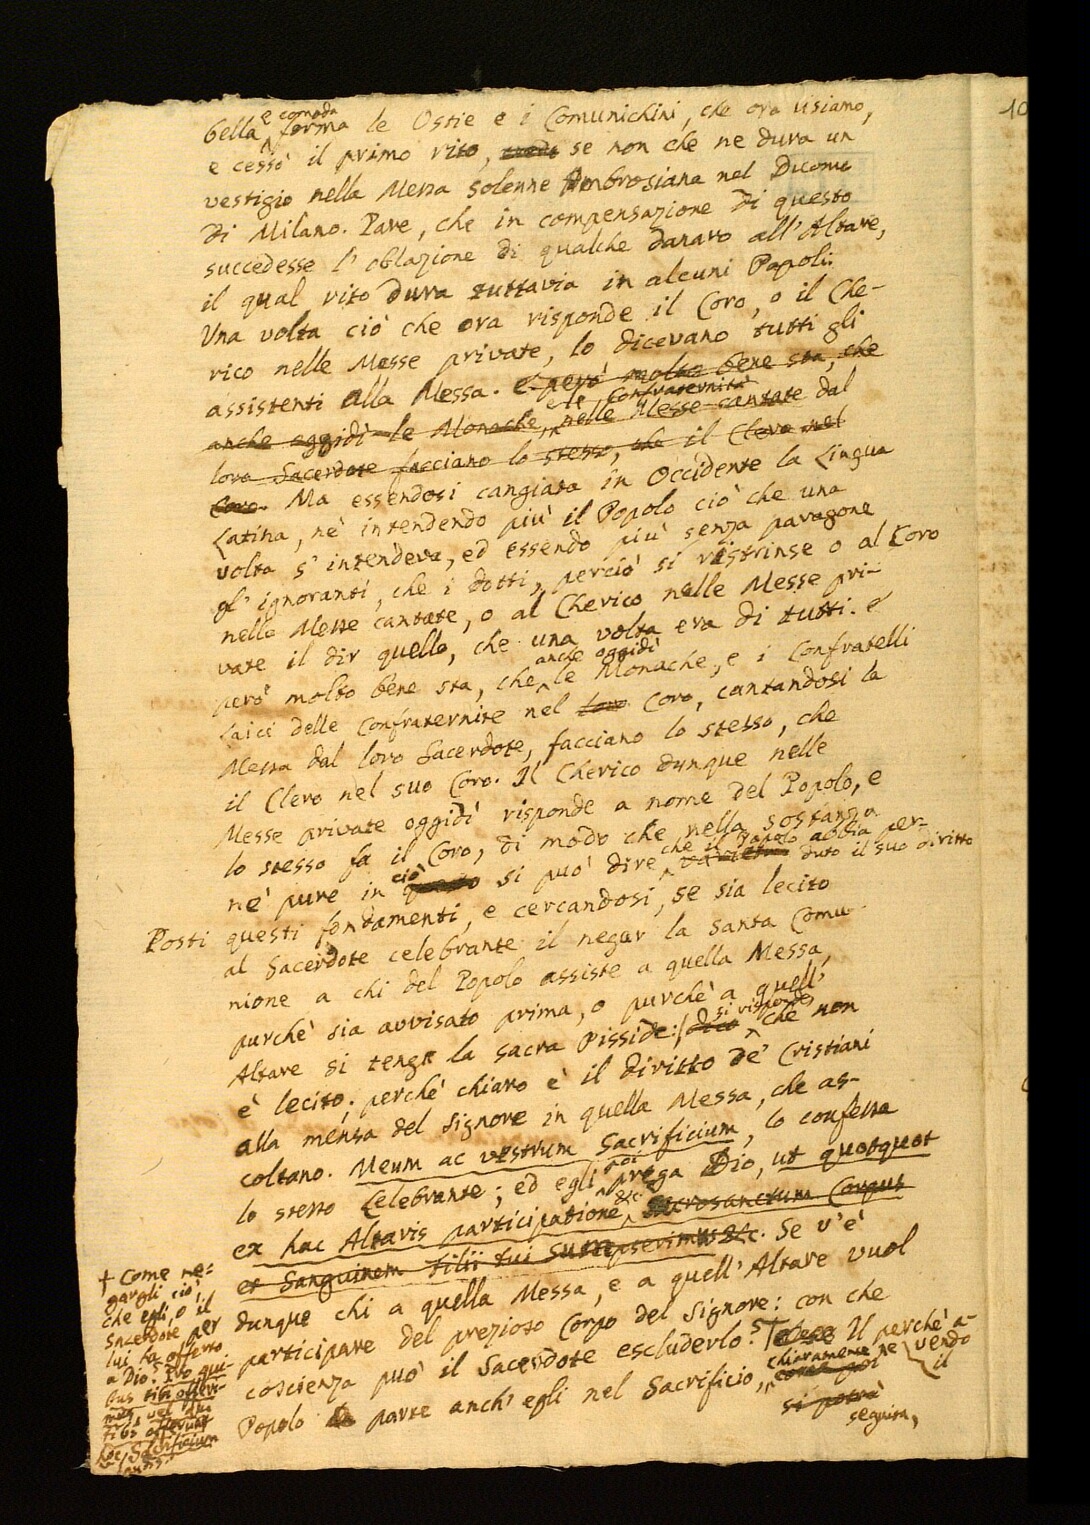 10
bella e comoda forma le Ostie e i Comunichini, che ora usiamo,
e cessò il primo rito, se non che ne dura un
vestigio nella Messa solenne Ambrosiana nel Duomo
di Milano. Pare, che in compensazione di questo
succedesse l'oblazione di qualche danaro all'Altare,
il qual rito dura tuttavia in alcuni Popoli.
Una volta ciò che ora risponde il Coro, o il Che-
rico nelle Messe private, lo dicevano tutti gli
assistenti alla Messa. E però molto bene sta, che
anche oggidì le Monache e le Confraternità nelle Messe cantate dal
loro Sacerdote facciano lo stesso, che il Clero nel
Coro. Ma essendosi cangiata in Occidente la Lingua
Latina, nè intendendo più il Popolo ciò che una
volta s'intendeva, ed essendo più senza paragone
gl'ignoranti, che i dotti, perciò si ristrinse o al Coro
nelle Messe cantate, o al Cherico nelle Messe pri-
vate il dir quello, che una volta era di tutti. E
però molto bene sta, che anche oggidì le Monache, e i Confratelli
Laici delle Confraternite nel loro Coro, cantandosi la
Messa dal loro Sacerdote, facciano lo stesso, che
il Clero nel suo Coro. Il Cherico dunque nelle
Messe private oggidì risponde a nome del Popolo, e
lo stesso fa il Coro, di modo che nella sostanza
nè pure in questo ciò si può dire che il Popolo abbia per-
duto il suo diritto
Posti questi fondamenti, e cercandosi, se sia lecito
al Sacerdote celebrante il negar la Santa Comu-
nione a chi del Popolo assiste a quella Messa,
purchè sia avvisato prima, o purchè a quell'
Altare si tenga la sacra Pisside: dico si risponde, che non
è lecito; perchè chiaro è il diritto de' Cristiani
alla mensa del Signore in quella Messa, che as-
coltano. Meum ac vestrum Sacrificium, lo confessa
lo stesso Celebrante; ed egli poi prega Dio, ut quotquot
ex hac Altaris participatione &c. Sacrosanctum Corpus
et Sanguinem Filii tui sumpserimus &c. Se v'è
dunque chi a quella Messa, e a quell'Altare vuol
participare del prezioso Corpo del Signore: con che
coscienza può il Sacerdote escluderlo? † Il perchè a-
vendo il
Popolo parte anch'egli nel Sacrificio, chiaramente ne
si potrà
seguita,
† Come ne=
gargli ciò,
che egli, o il
Sacerdote per
lui ha offerto
a Dio? Pro qui-
bus tibi offeri-
mus, vel qui
tibi offerunt
hoc Sacrificium
laudis.